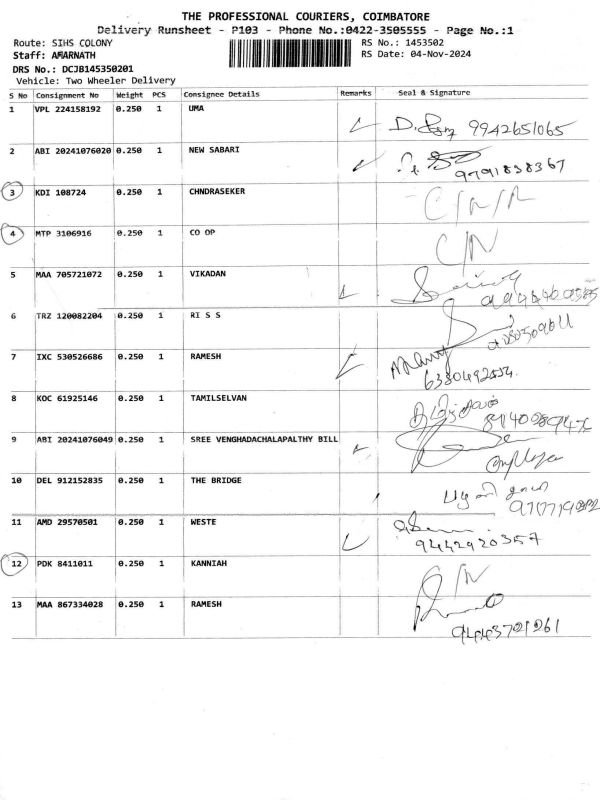 THE PROFESSIONAL COURIERS, COIMBATORE
Delivery Runsheet - P103 - Phone No.:0422-3505555 - Page No.:1
Route: SIHS COLONY RS No.: 1453502
Staff: AMARNATH RS Date: 04-Nov-2024
DRS No.: DCJB145350201
Vehicle: Two Wheeler Delivery
S No Consignment No Weight PCS Consignee Details Remarks Seal & Signature
1 VPL 224158192 0.250 1 UMA
9942651065
2 ABI 20241076020 0.250 1 NEW SABARI
9791838367
3 KDI 108724 0.250 1 CHNDRASEKER
4 MTP 3106916 0.250 1 CO OP
C/N
5 MAA 705721072 0.250 1 VIKADAN
6 TRZ 120082204 0.250 1 RI S S
7 IXC 530526686 0.250 1 RAMESH
8 KOC 61925146 0.250 1 TAMILSELVAN
9 ABI 20241076049 0.250 1 SREE VENGHADACHALAPALTHY BILL
10 DEL 912152835 0.250 1 THE BRIDGE
11 AMD 29570501 0.250 1 WESTE
9442920357
12 PDK 8411011 0.250 1 KANNIAH
C/N
13 MAA 867334028 0.250 1 RAMESH
9443721261